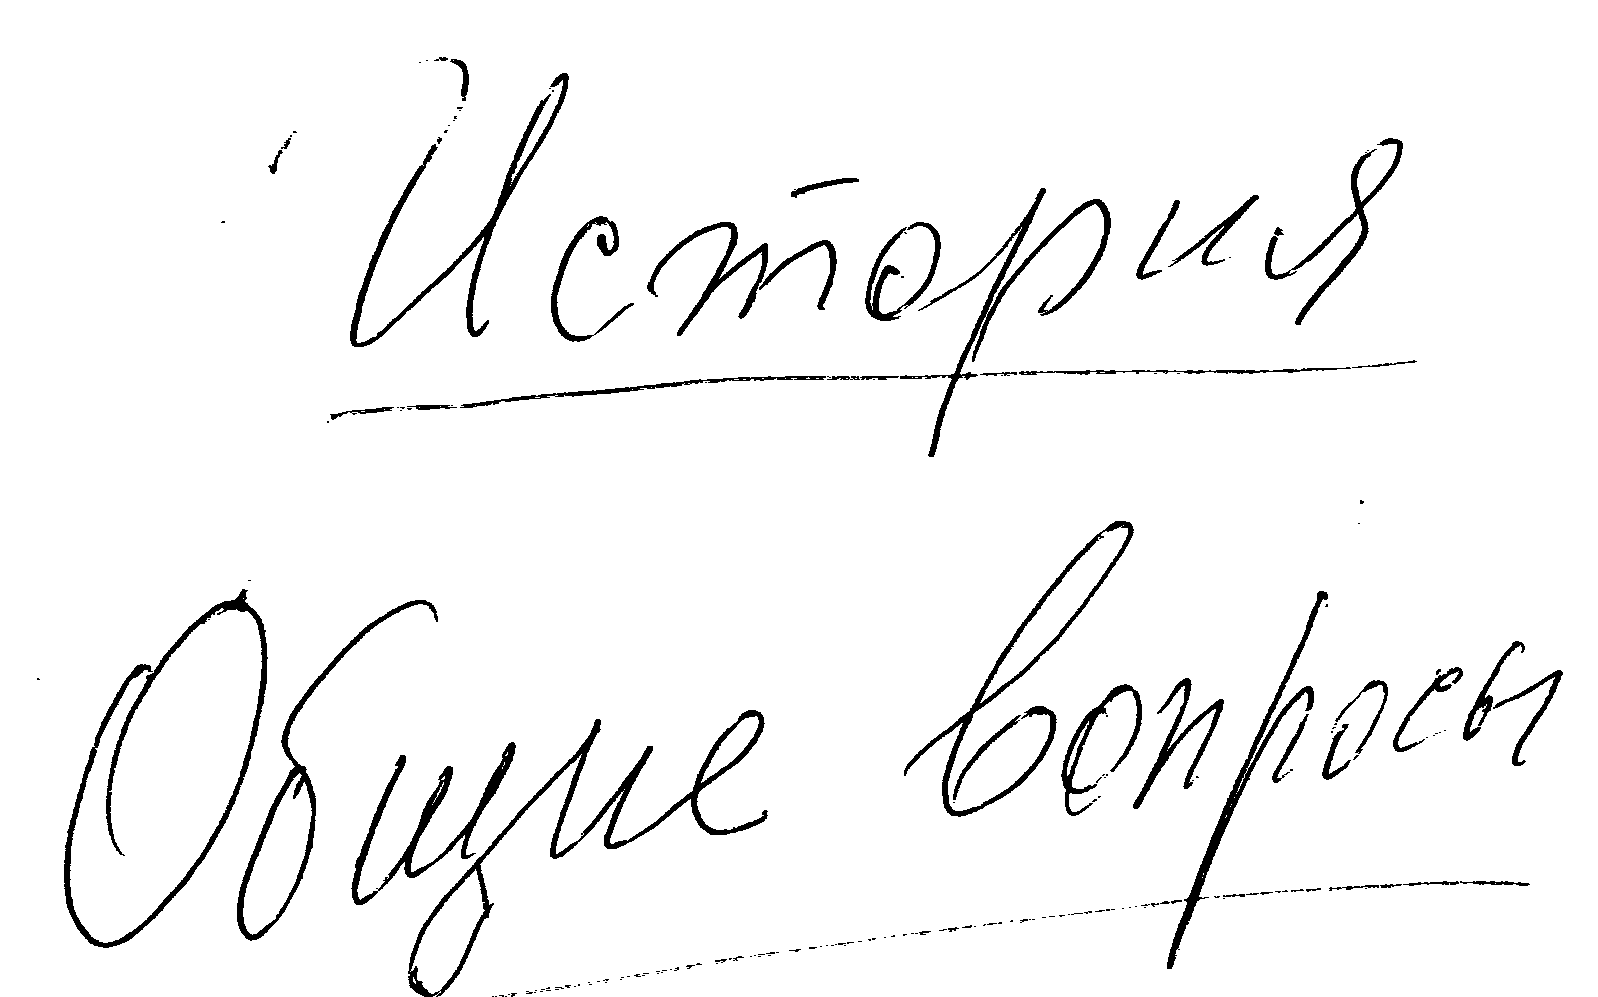 История
Общие вопросы